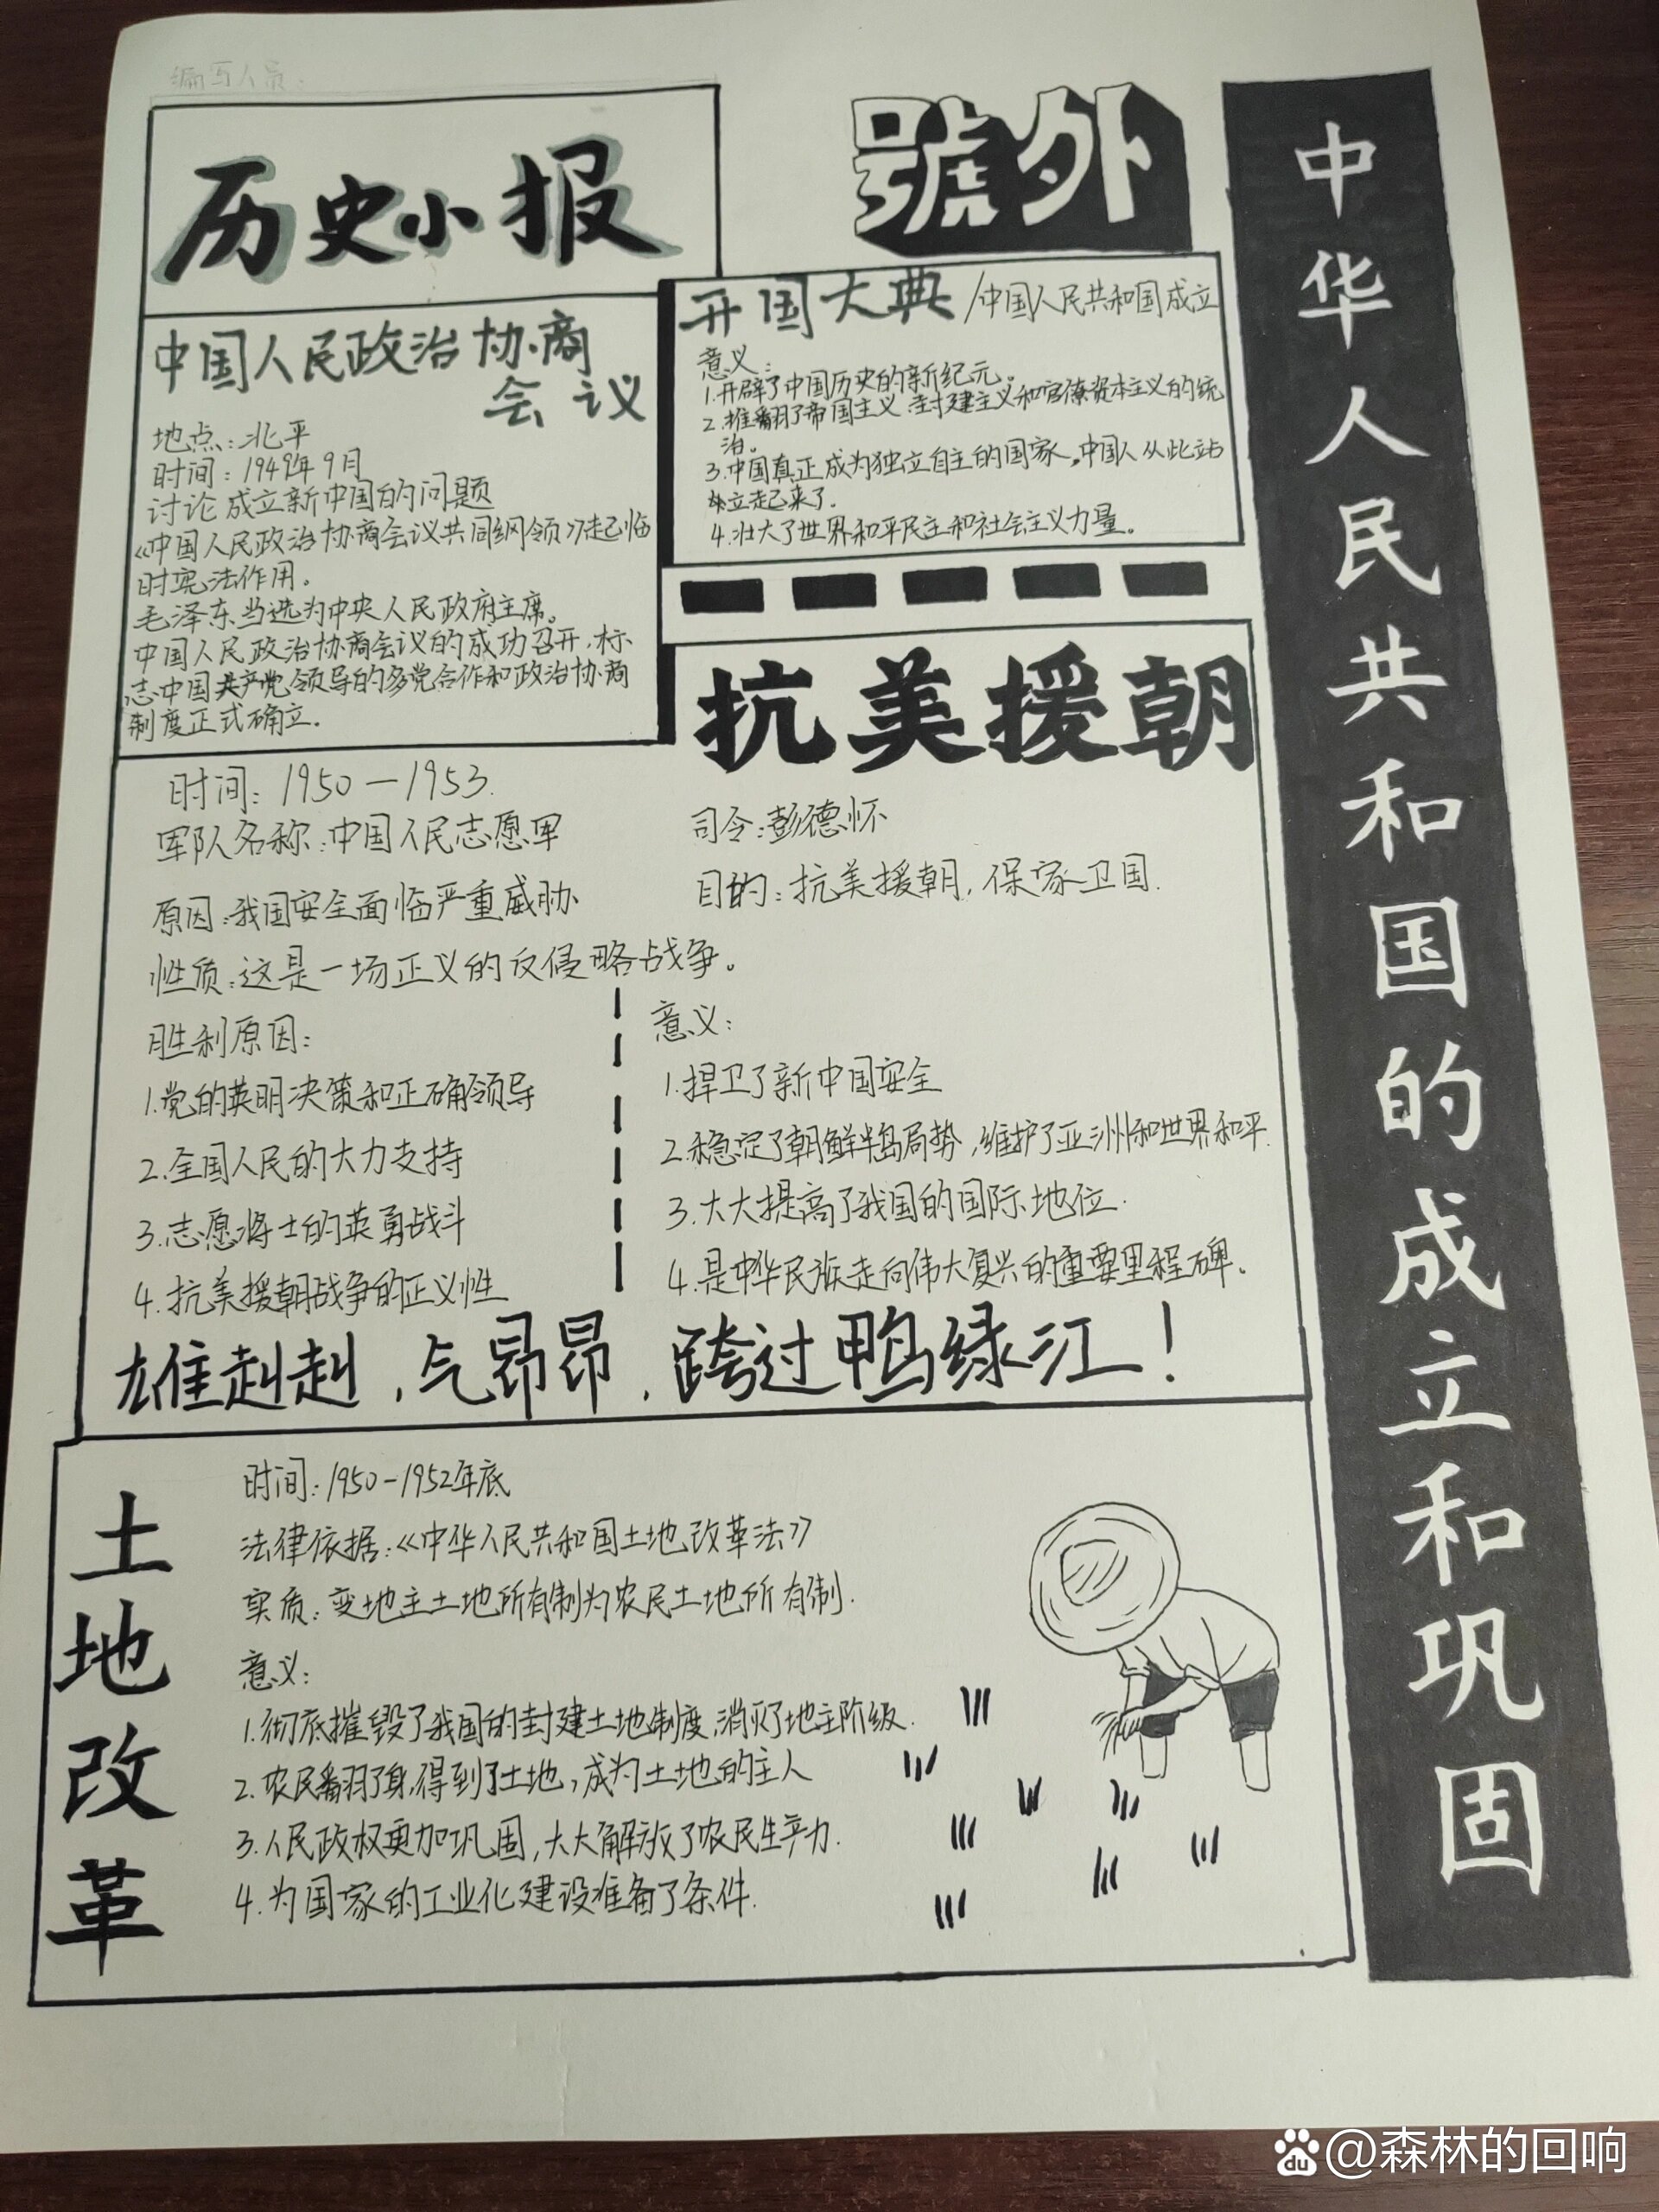 编写人员:
历史小报
號外
中华人民共和国的成立和巩固
中国人民政治协商
会议
地点:北平
时间:1949年9月
讨论成立新中国的问题
《中国人民政治协商会议共同纲领》起临
时宪法作用。
毛泽东当选为中央人民政府主席。
中国人民政治协商会议的成功召开,标
志中国共产党领导的多党合作和政治协商
制度正式确立.
开国大典/中国人民共和国成立
意义:
1.开辟了中国历史的新纪元。
2.推翻了帝国主义、封建主义和官僚资本主义的统
治。
3.中国真正成为独立自主的国家,中国人从此站
立起来了.
4.壮大了世界和平民主和社会主义力量。
抗美援朝
时间:1950—1953.
军队名称:中国人民志愿军
司令:彭德怀
原因:我国安全面临严重威胁
目的:抗美援朝,保家卫国.
性质:这是一场正义的反侵略战争。
胜利原因:
1.党的英明决策和正确领导
2.全国人民的大力支持
3.志愿将士的英勇战斗
4.抗美援朝战争的正义性
意义:
1.捍卫了新中国安全
2.稳定了朝鲜半岛局势,维护了亚洲和世界和平.
3.大大提高了我国的国际地位.
4.是中华民族走向伟大复兴的重要里程碑。
雄赳赳,气昂昂,跨过鸭绿江!
土地改革
时间:1950-1952年底
法律依据:《中华人民共和国土地改革法》
实质:变地主土地所有制为农民土地所有制.
意义:
1.彻底摧毁了我国的封建土地制度,消灭了地主阶级.
2.农民翻了身,得到了土地,成为土地的主人
3.人民政权更加巩固,大大解放了农民生产力.
4.为国家的工业化建设准备了条件.
du @森林的回响